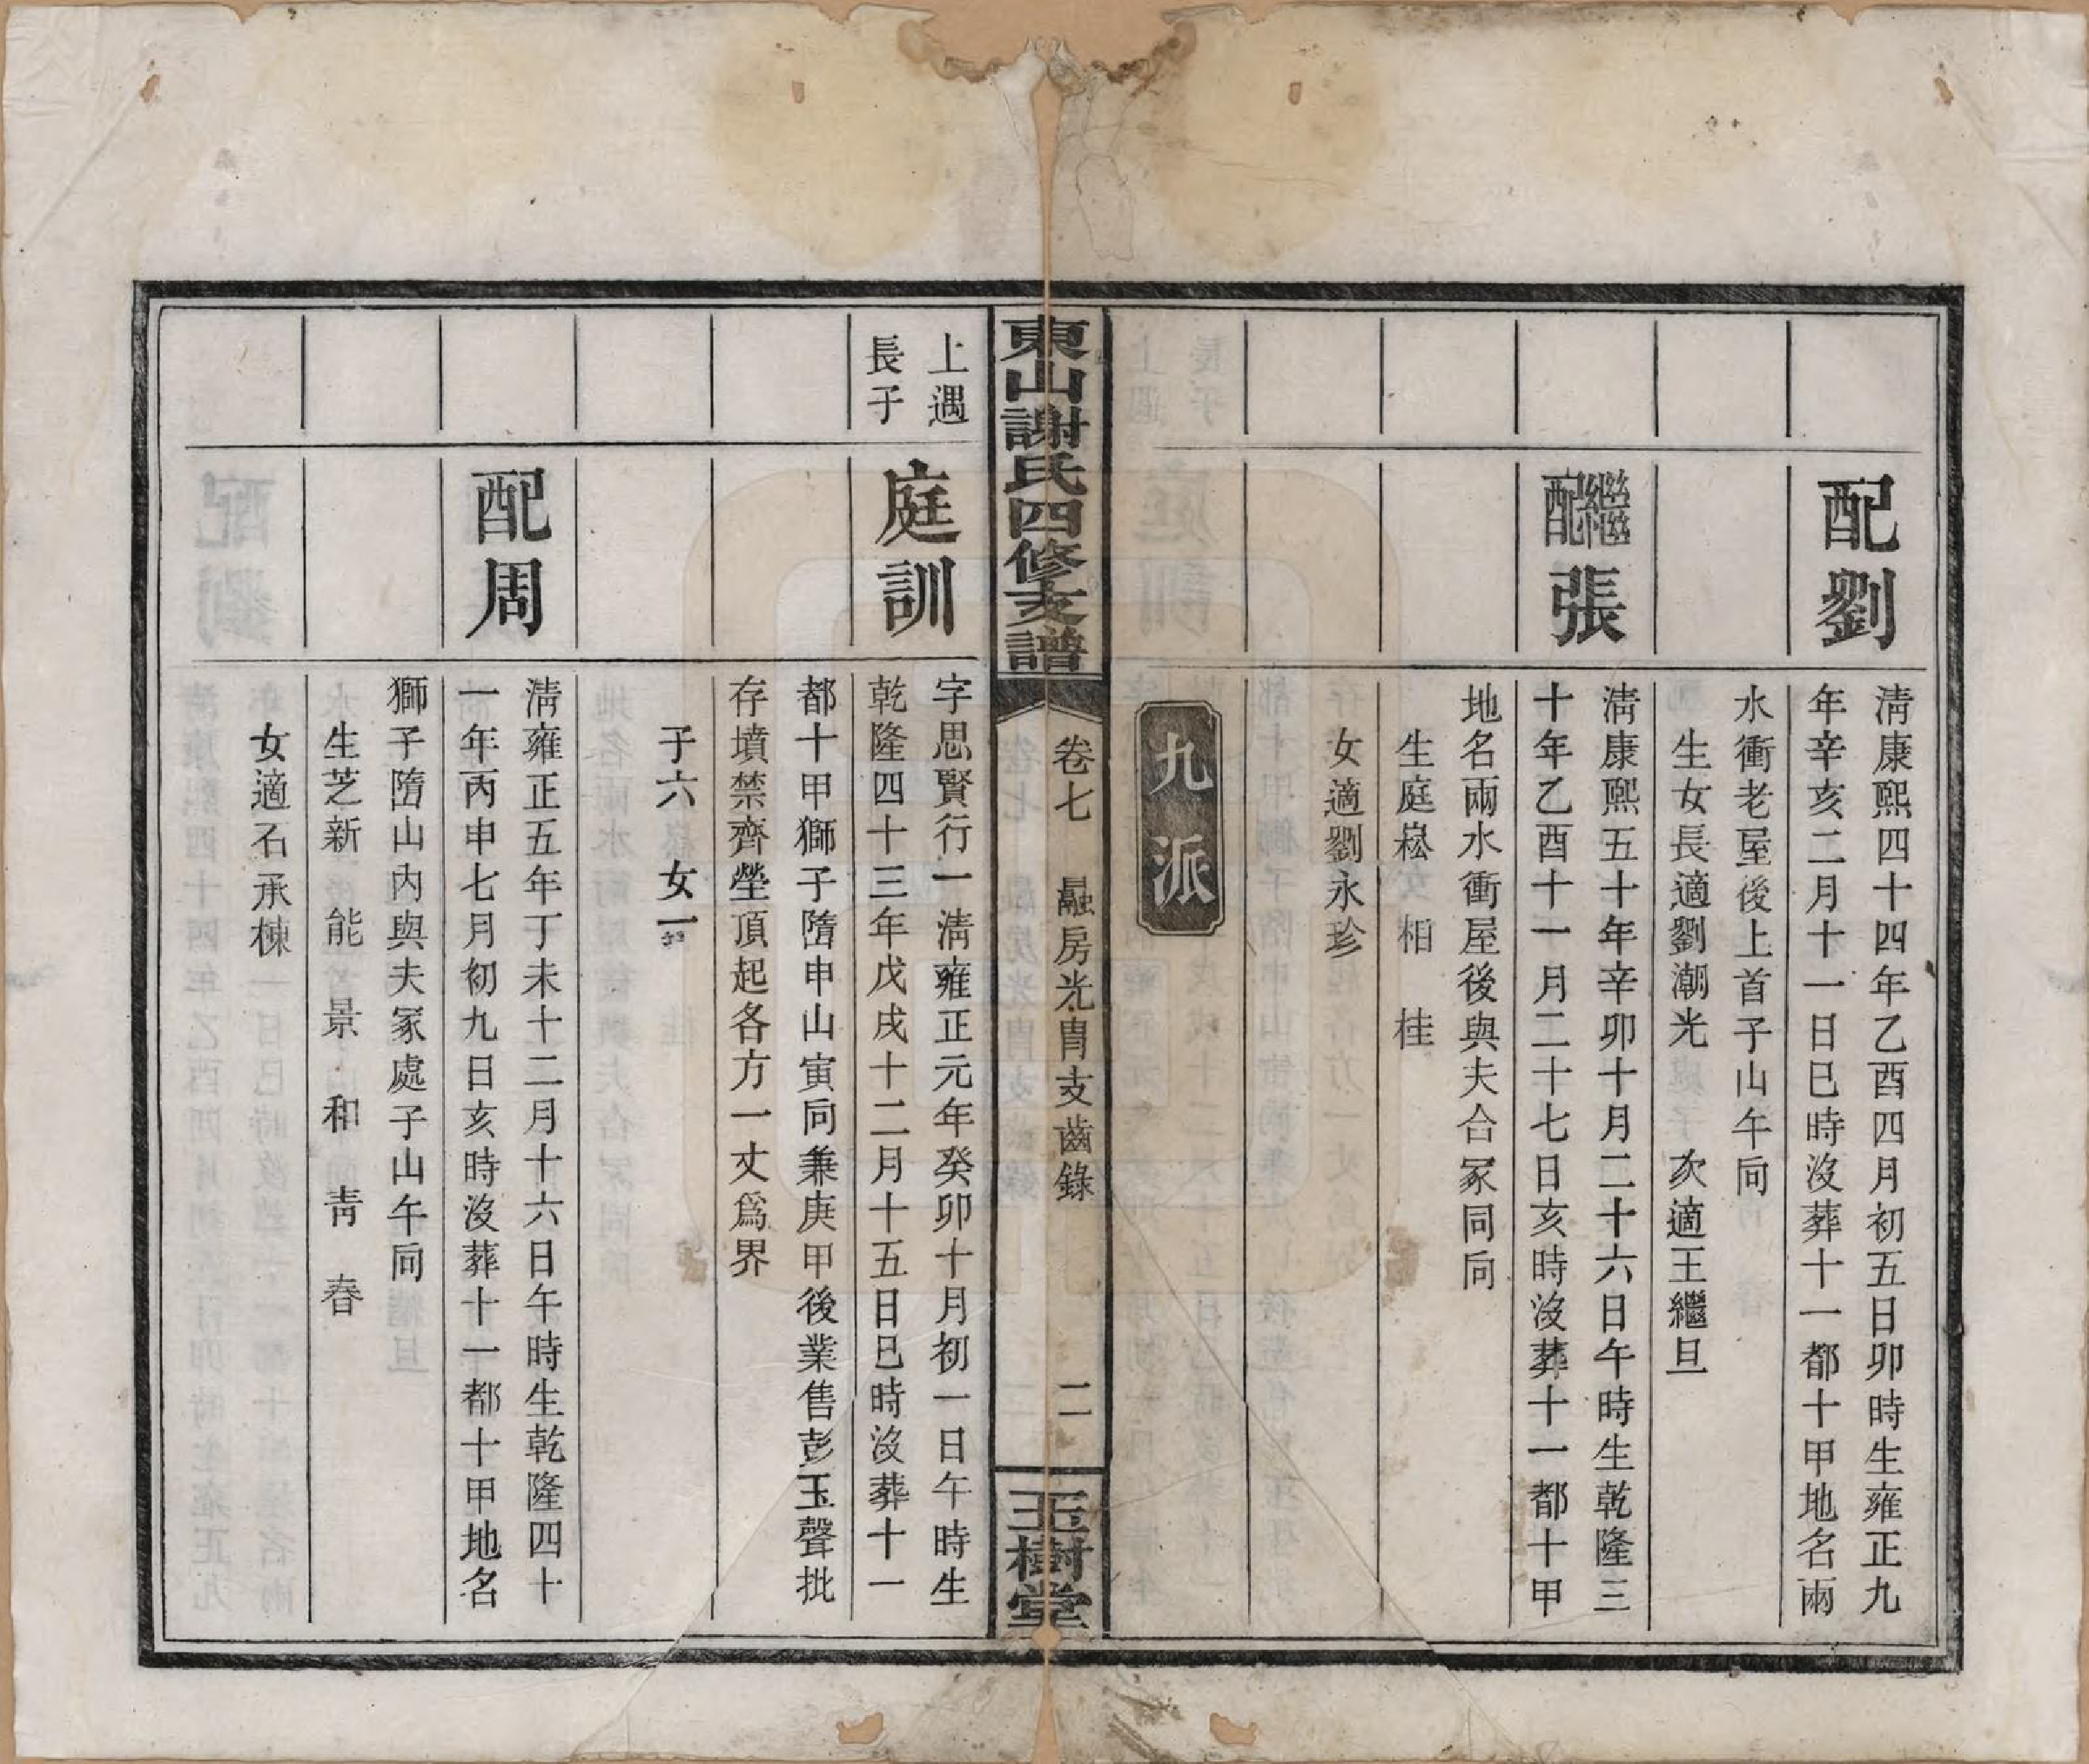 配劉
清康熙四十四年乙酉四月初五日卯時生雍正九
年辛亥二月十一日巳時沒葬十一都十甲地名兩
水衝老屋後上首子山午向
生女長適劉潮光 次適王繼旦
繼配張
清康熙五十年辛卯十月二十六日午時生乾隆三
十年乙酉十一月二十七日亥時沒葬十一都十甲
地名兩水衝屋後與夫合冢同向
生庭崧 相 桂
女適劉永珍
九派
東山謝氏四修支譜
卷七 融房光胄支齒錄
二
玉樹堂
上遇
長子
庭訓
字思賢行一清雍正元年癸卯十月初一日午時生
乾隆四十三年戊戌十二月十五日巳時沒葬十一
都十甲獅子隋申山寅向兼庚甲後業售彭玉聲批
存墳禁齊塋頂起各方一丈爲界
子六 女一
配周
清雍正五年丁未十二月十六日午時生乾隆四十
一年丙申七月初九日亥時沒葬十一都十甲地名
獅子隋山內與夫冢處子山午向
生芝新 能 景 和 靑 春
女適石承棟